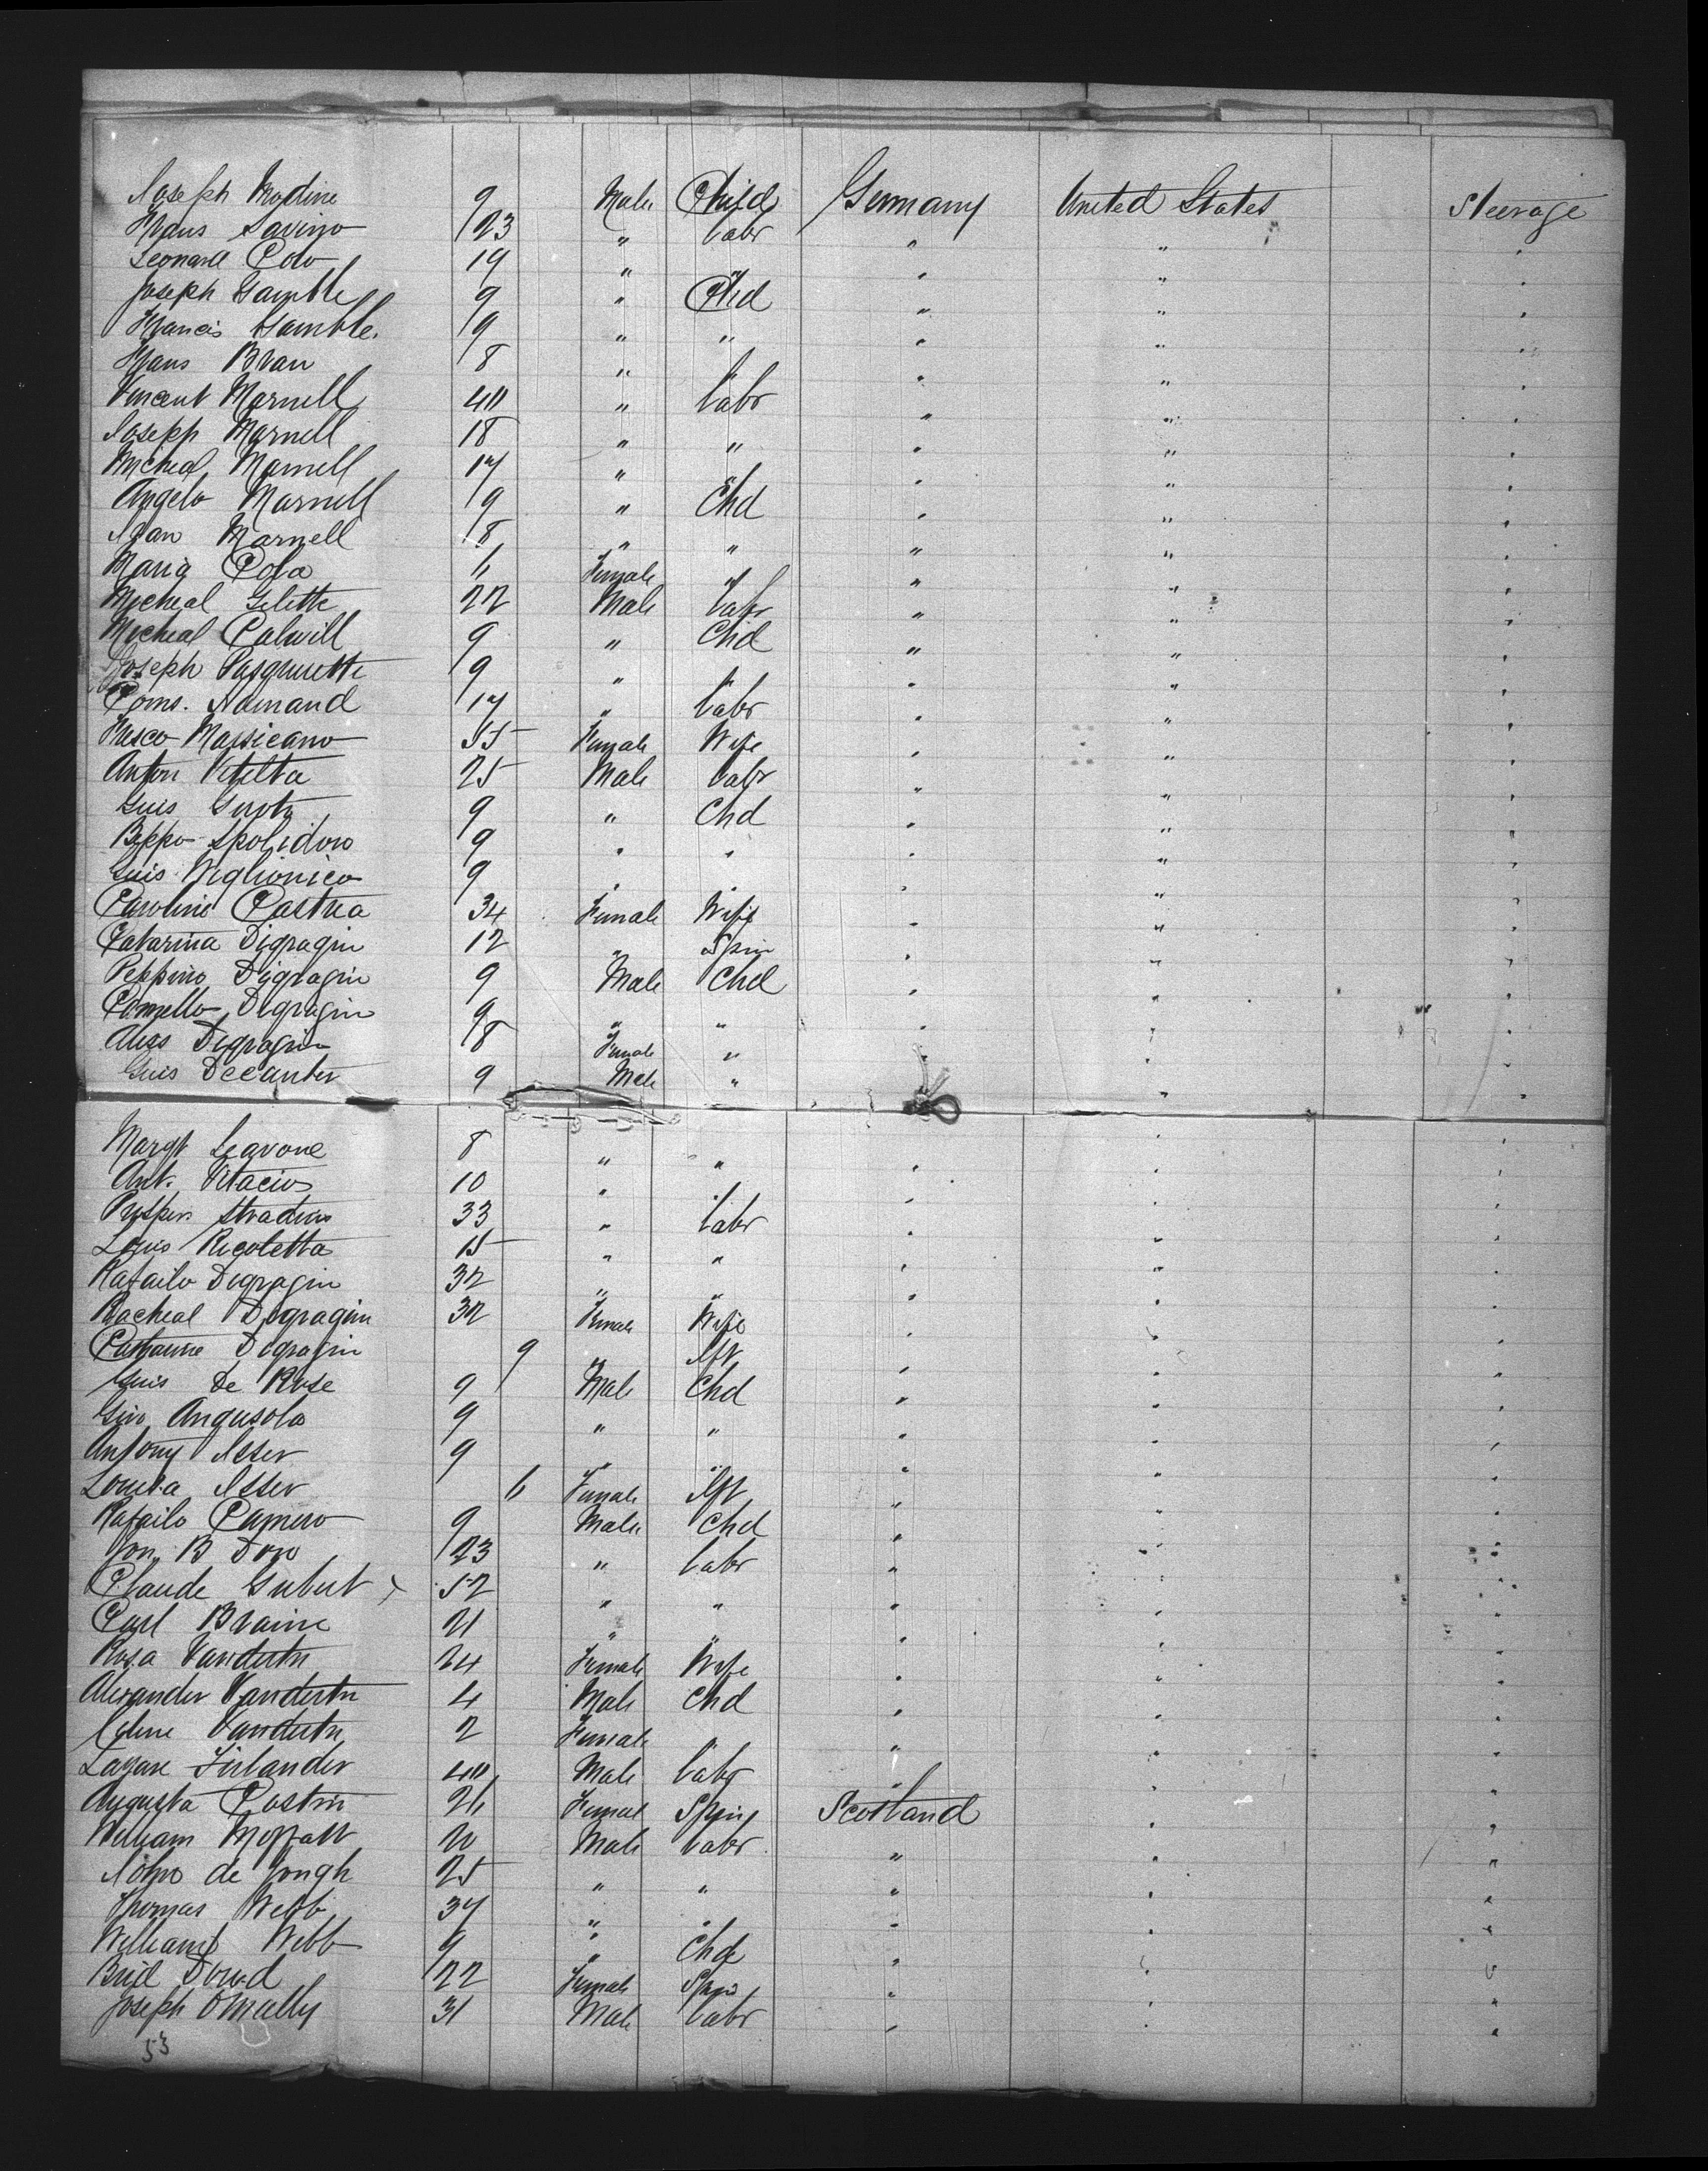 Joseph Modine 9 Male Child Germany United States Steerage
Hans Savino 23 " Labr " " "
Leonard Colo 19 " " " " "
Joseph Gamble 9 " Chd " " "
Francis Gamble. 9 " " " " "
Hans Bran 8 " " " " "
Vincent Marnell 40 " Labr " " "
Joseph Marnell 18 " " " " "
Micheal Marnell 17 " " " " "
Angelo Marnell 9 " Chd " " "
Marnell 8 " " " " "
Maria Cola 6 Female " " " "
Micheal Gilette 22 Male Labr " " "
Micheal Calwill 9 " Chd " " "
Joseph Pasqurette 9 " " " " "
Coms. Namand 17 " Labr " " "
Fusco Marsicano 55 Female Wife " " "
Anton Vitelta 25 Male Labr " " "
Guis 9 " Chd " " "
Beppo Spolidoro 9 " " " " "
Guis Viglionico 9 " " " " "
Caroline Castria 34 Female Wife " " "
Catarina Digragin 12 " Spin " " "
Peppino Digragin 9 Male Chd " " "
Comello Digragin 9 " " " " "
Digragin 8 Female " " " "
Guis Decanter 9 Male " " " "
Margt Leavone 8 " " " " "
Ant. Vitacius 10 " " " " "
Prosper Stradius 33 " Labr " " "
Louis Ricoletta 15 " " " " "
Rafailo Digragin 32 " " " " "
Racheal Digragin 32 Female Wife " " "
Catharine Digragin 9 " Inft " " "
Guis De Rose 9 Male Chd " " "
Giro Angusola 9 " " " " "
Antony Asser 9 " " " " "
Louisa Asser 6 Female Inft " " "
Rafailo Camero 9 Male Chd " " "
Jon. B Doro 23 " Labr " " "
Claude Gubert x 52 " " " " "
Carl Braine 21 " " " " "
Rosa Vandertn 24 Female Wife " " "
Alexander Vandertn 4 Male Chd " " "
Celine Vandertn 2 Female " " " "
Lazare Firlander 40 Male Labr " " "
Augusta Costin 26 Female Spin Scotland " "
William Moffatt 20 Male Labr " " "
John de Jongh 25 " " " " "
Thomas Webb 37 " " " " "
William Webb 9 " Chd " " "
Brid Dowd 22 Female Spin " " "
Joseph O'Mally 31 Male Labr " " "
53